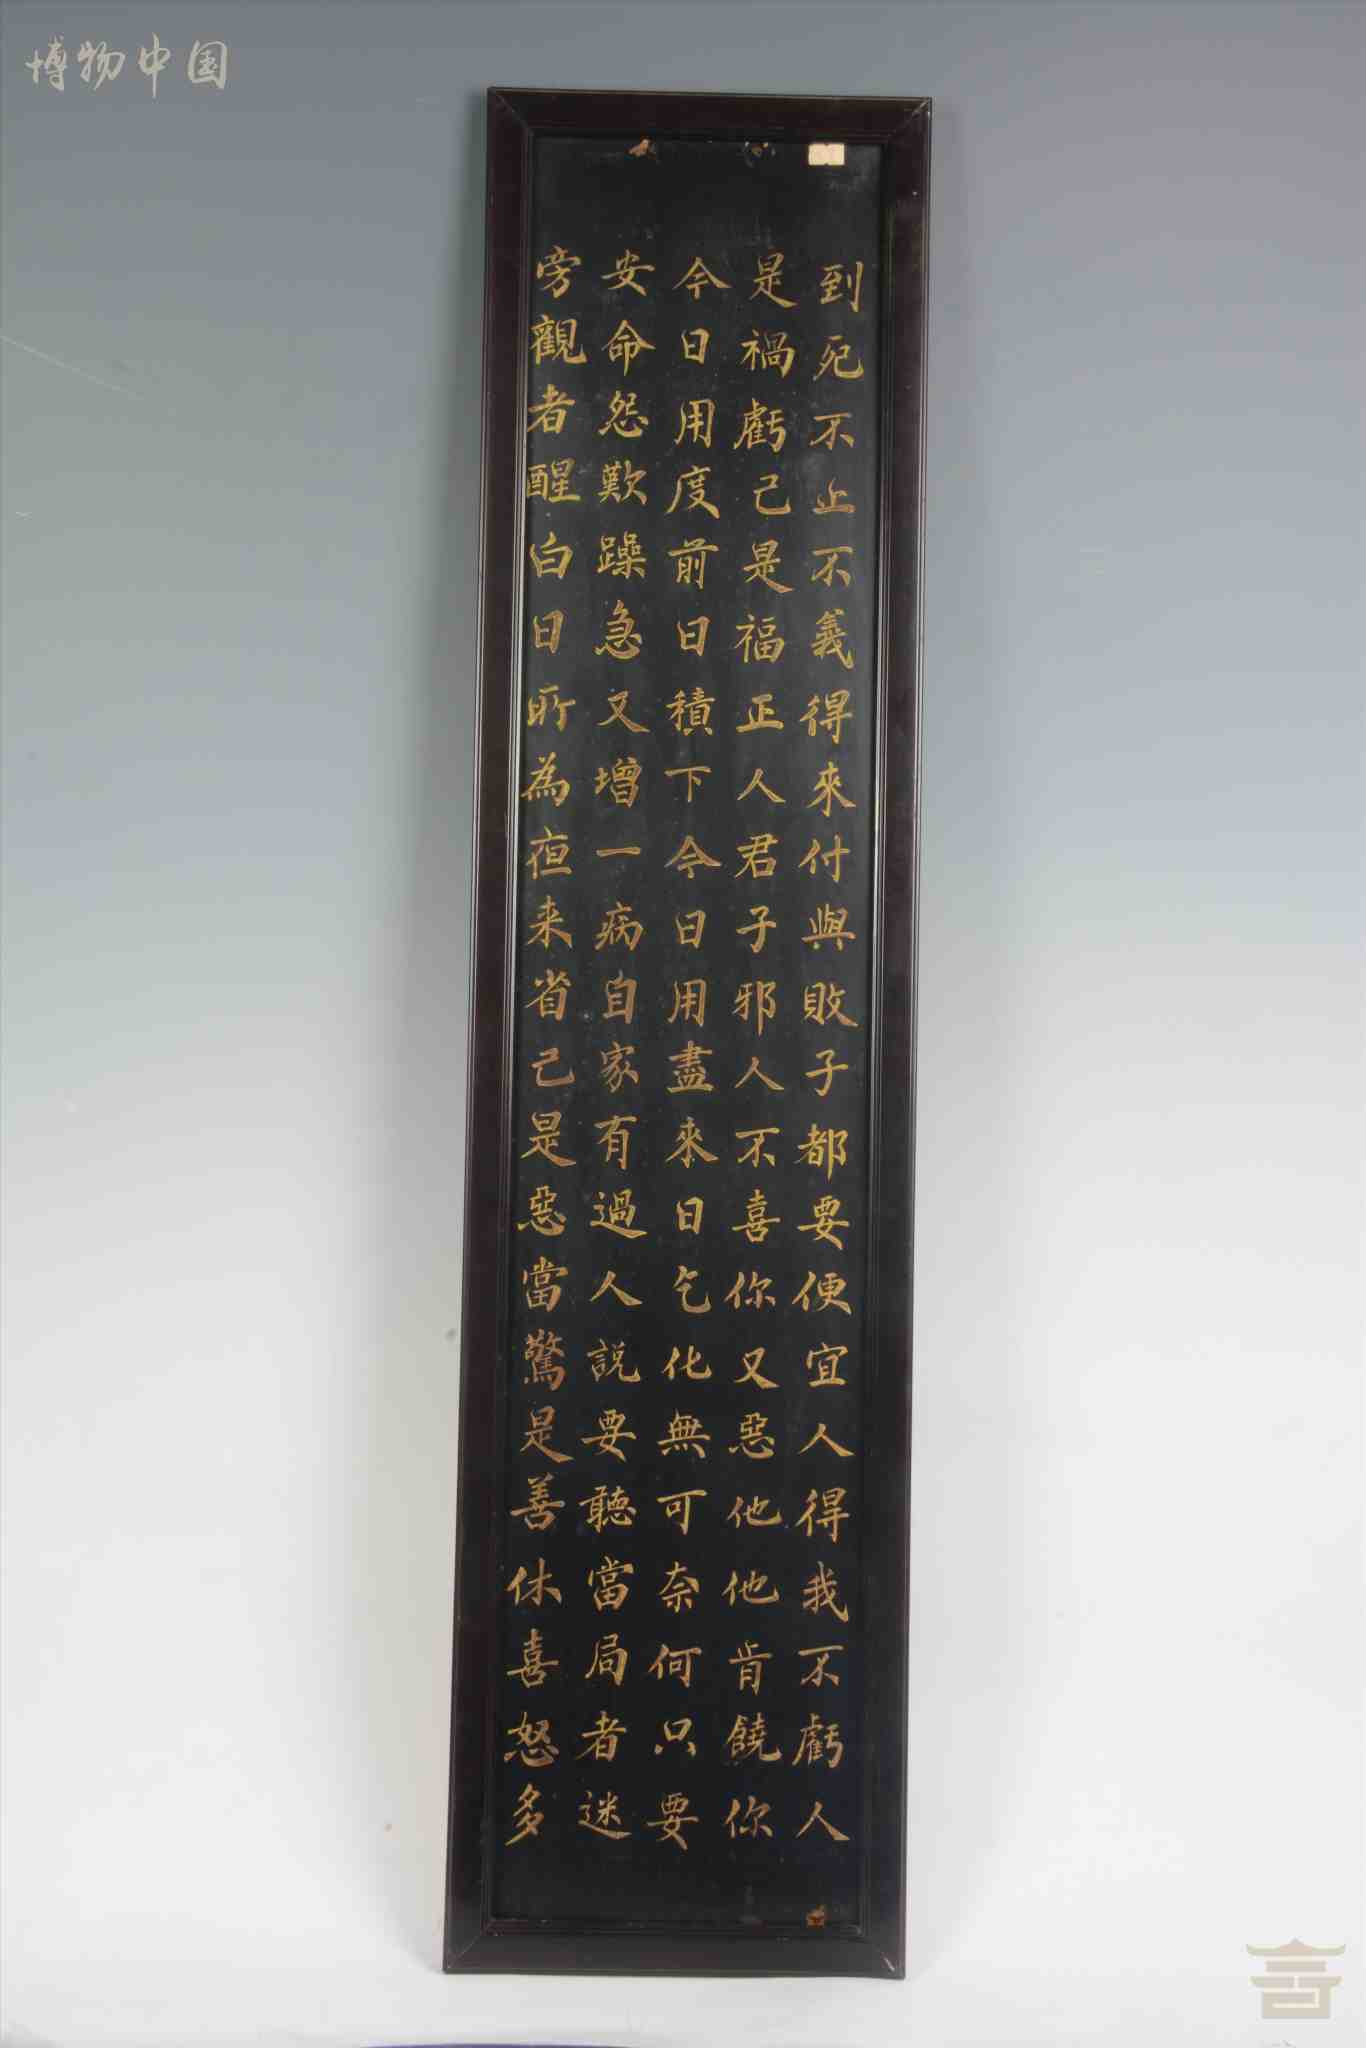 博物中国
到死不止不義得來付與敗子都要便宜人得我不虧人
是禍虧己是福正人君子邪人不喜你又惡他他肯饒你
今日用度前日積下今日用盡來日乞化無可奈何只要
安命怨歎躁急又增一病自家有過人說要聽當局者迷
旁觀者醒白日所為夜来省己是惡當驚是善休喜怒多